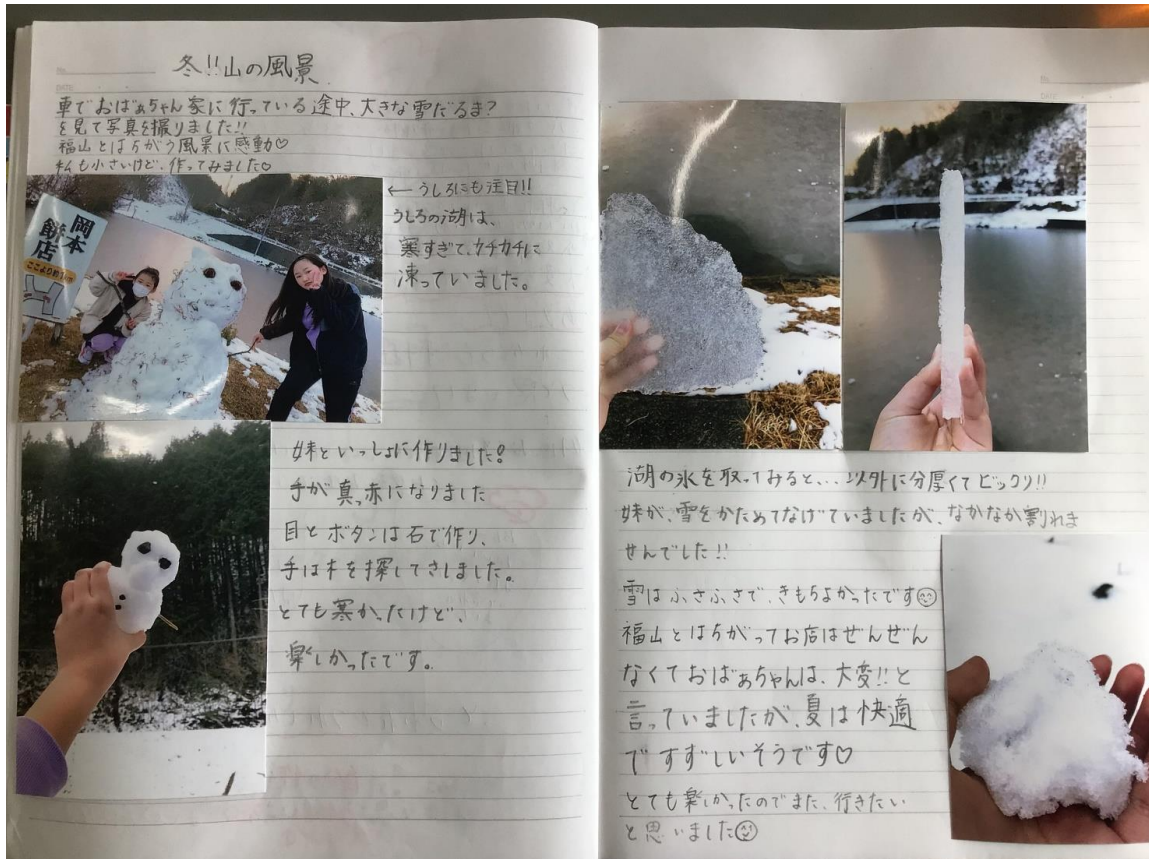 冬!!山の風景
車でおばぁちゃん家に行っている途中、大きな雪だるま?
を見て写真を撮りました!!
福山とはちがう風景に感動♡
私も小さいけど、作ってみました♡
岡本
餅店
ここより約1
←うしろにも注目!!
うしろの湖は、
寒すぎて、カチカチに
凍っていました。
妹といっしょに作りました!
手が真っ赤になりました
目とボタンは石で作り、
手は木を探してさしました。
とても寒かったけど、
楽しかったです。
湖の氷を取ってみると、、、以外に分厚くてビックリ!!
妹が、雪をかためてなげていましたが、なかなか割れま
せんでした!!
雪はふさふさで、きもちよかったです😊
福山とはちがってお店はぜんぜん
なくておばぁちゃんは、大変!!と
言っていましたが、夏は快適
ですずしいそうです♡
とても楽しかったのでまた、行きたい
と思いました😊